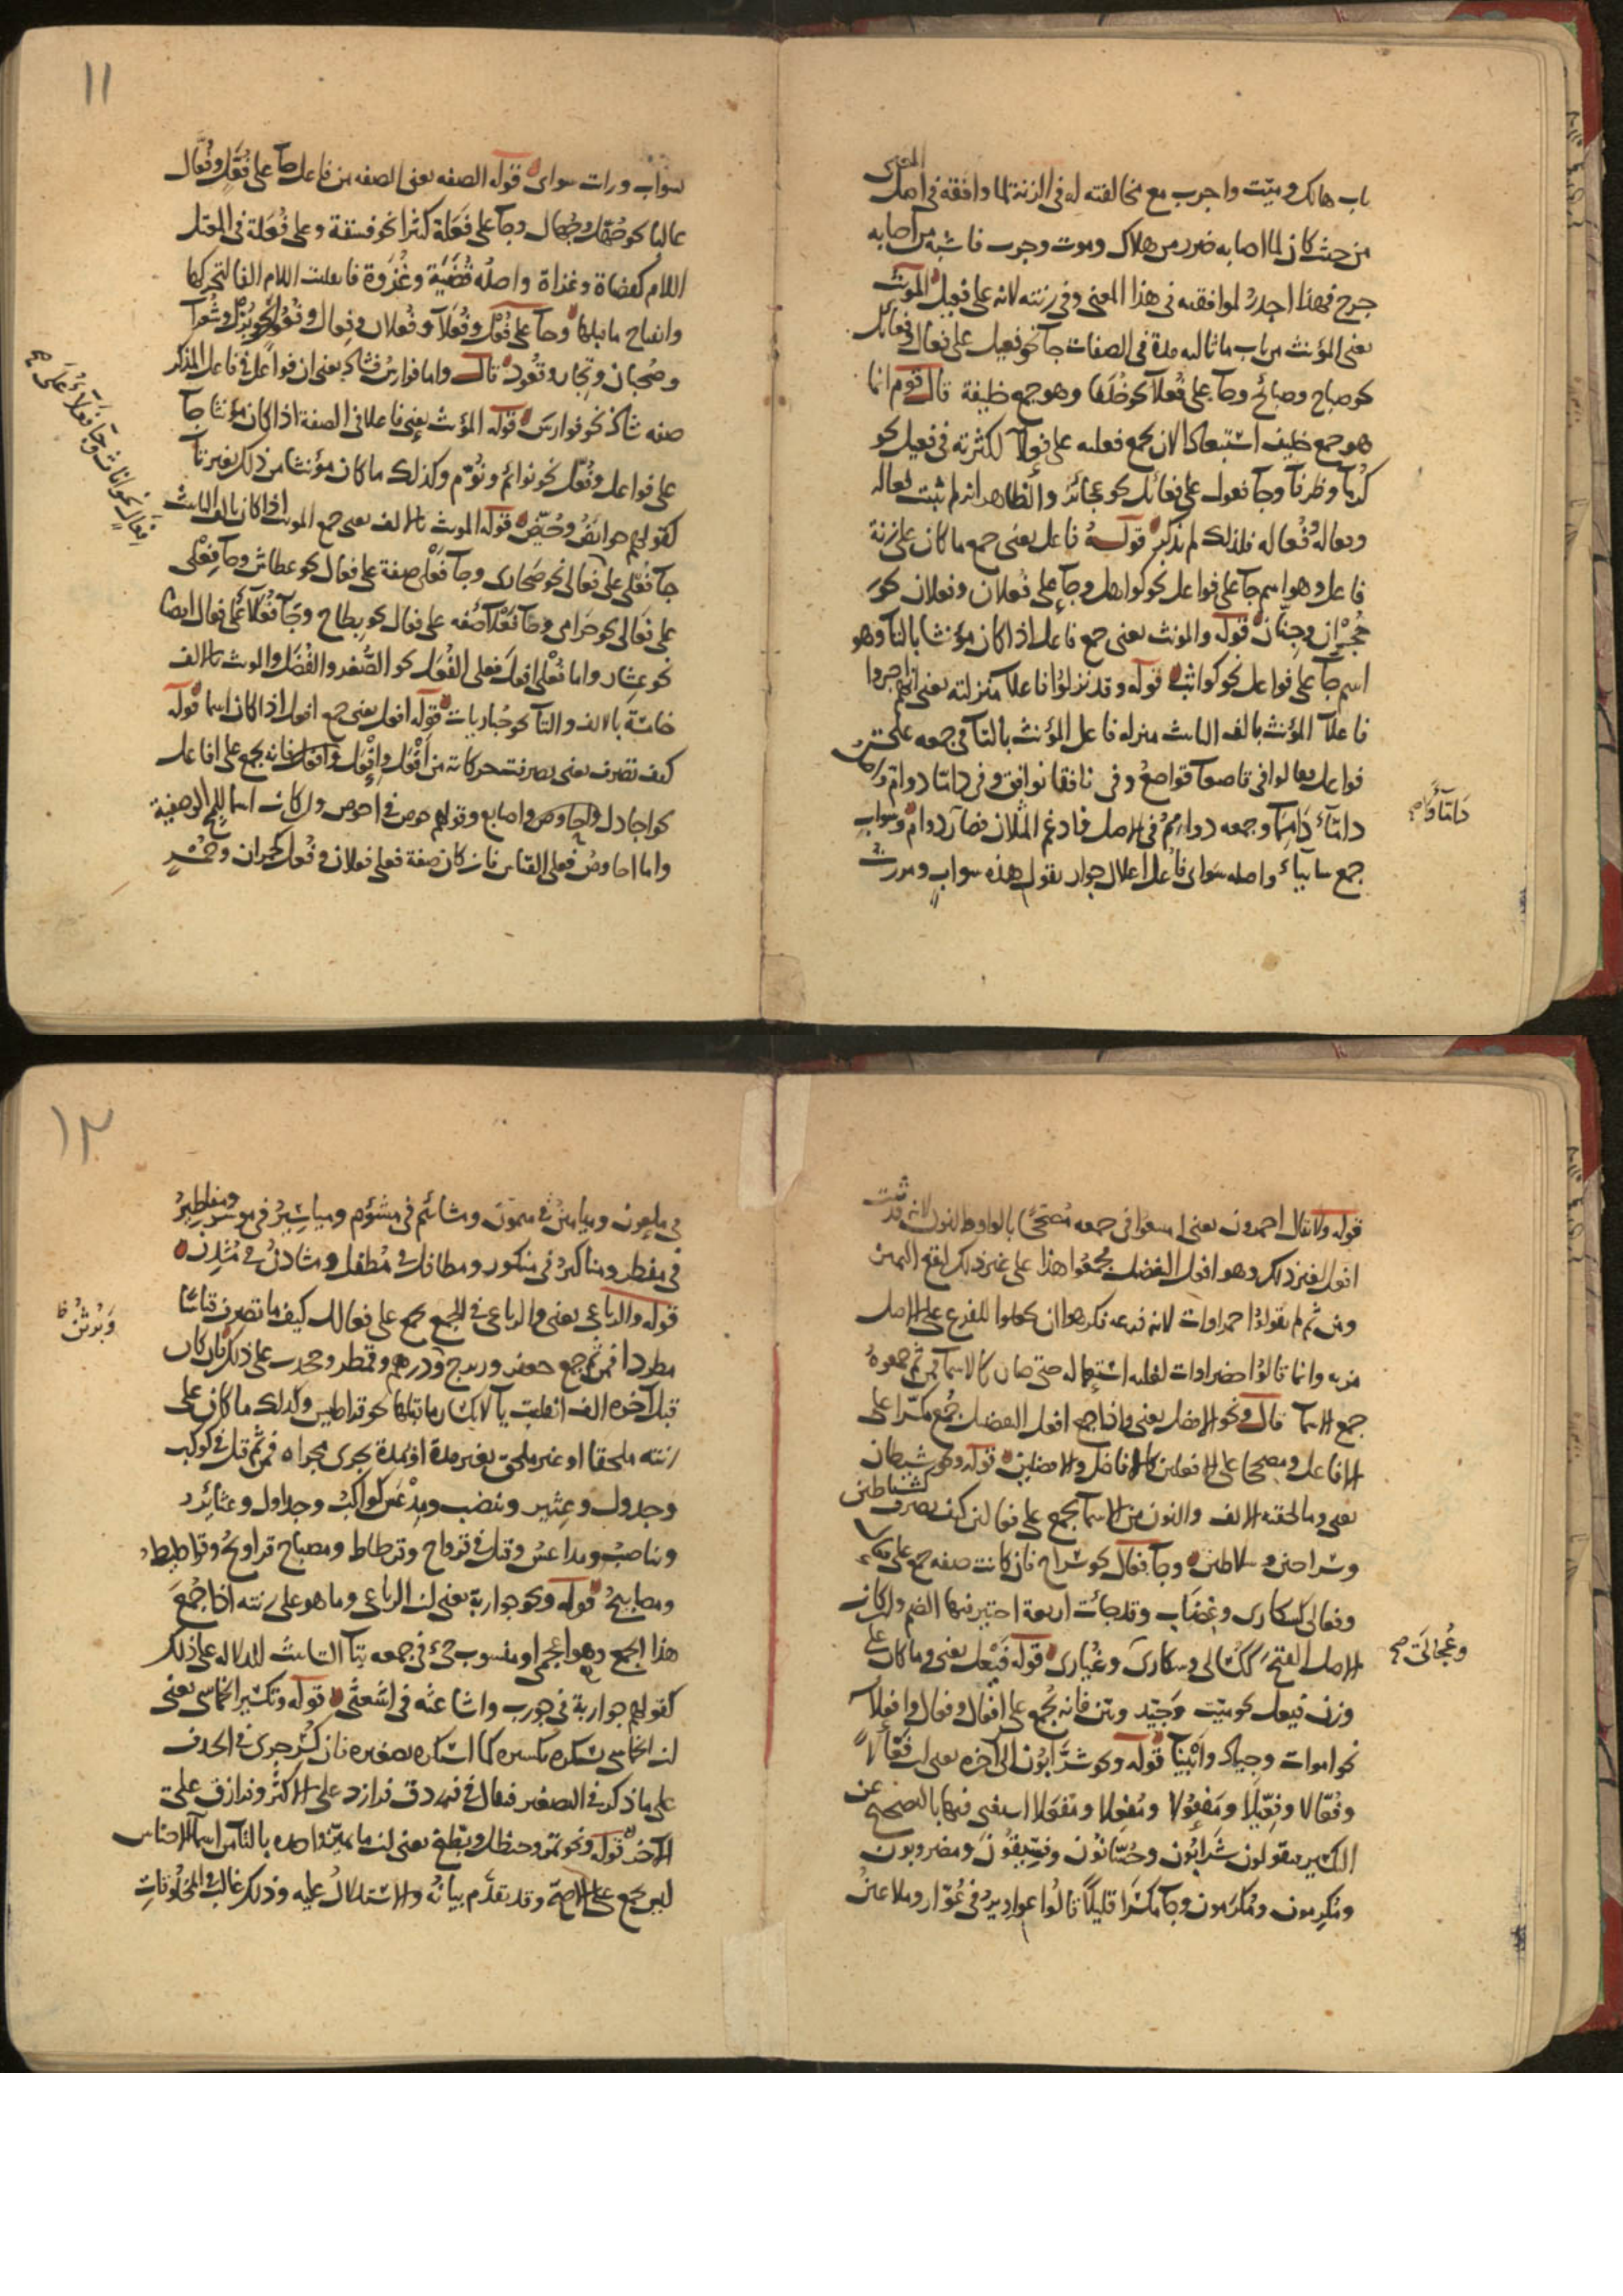 باب هالك وميّت واجرب مع مخالفته له في الزنة لما وافقه في اصل المعنى
من حيث كان لما اصابه ضرر من هلاك وموت وجرب فاشبه من اصابه
جرح فهذا اجدرُ لموافقته في هذا المعنى وفي زنته لانه على فعيل قوله المونث
يعنى المؤنث من باب ما ثالثه مدة في الصفات جآ نحو فعيل على فعال وفعائل
نحو صباح وصبائح وجآ على فُعلآ نحو خُلَفا وهو جمع خليفة قال قوم انما
هو جمع خليف استبعادا لان يجمع فعليه على فعلآ لكثرته في فعيل نحو
كرمآ وظرفآ وجآ فعول على فعائل نحو عجائز والظاهر انه لم يثبت فعاله
وفعاله فُعاله فلذلك لم يذكر قوله فاعل يعنى جمع ما كان على زنة
فاعل وهو اسم جآ على فواعل نحو كواهل وجآ على فُعلان وفعلان نحو
حُجْران وجِنّان قوله والمونث يعنى جمع فاعل اذا كان مؤنثا بالتآ وهو
اسم جآ على فواعل نحو كواثب قوله وقد نزلوا فاعلآ منزلته يعنى انهم اجروا
فاعلآ المؤنث بالف التانيث منزله فاعل المؤنث بالتآ في جمعه على
فواعل فقالوا في قاصعآ قواصعُ وفي نافقا نوافق وفي دامّا دوامّ واصل
دامّآء دَامِمَآ وجمعه دوامِمُ في الاصل فادغم المثلان فصار دوامّ وسوابٍ
جمع سابيآء واصله سَوابى فاُعل اعلال جوار تقول هذه سوابٍ ومررت
دَامّآءُ وَاصح
11
بسَوابٍ ورات سوابى قوله الصفه يعنى الصفه من فاعل جآ على فُعَّلٍ وفُعَّال
غالبا نحو جُهَّل وجُهّال وجآ على فَعَلَة كثيرا نحو فسقة وعلى فُعَلَة في المعتل
اللام كقضاة وغزاة واصله قُضَيَة وغُزَوة فانقلبت اللام الفا لتحركها
وانفتاح ما قبلها وجآ على فُعْل وفُعَلآ وفُعلان وفِعال وفُعُول نحو بُزْل وشُعرآ
وصُحبان وتِجار وقُعود قال واما فوارس فشاذ يعنى ان فواعل في فاعل المذكر
صفه شاذ نحو فوارسَ قوله المؤنث يعنى فاعلا في الصفة اذا كان مؤنثا جآ
على فواعل وفُعّل نحو نوائم ونُوّم وكذلك ما كان مؤنثا من ذلك بغير تآ
كقولهم حوائضُ وحُيّض قوله المونث بالالف يعنى جمع المونث اذا كان بالف التانيث
جآ فُعْلى على فَعالى نحو صَحارى وجآ فَعْلى صفة على فعال نحو عطاش وجآ فِعْلى
على فَعَالى نحو حَرامى وجآ فَعْلآ صفه على فعال نحو بِطاح وجآ فُعَلآء على فعال ايضا
نحو عِشار واما فُعْلى افعل فعلى الفُعَل نحو الصُّغر والفُضَل والمونث بالالف
خامسة بالالف والتآ نحو حُباريات قوله افعل يعنى جمع افعل اذا كان اسما قوله
كيف تصرف يعنى تصرفت حركاته من اَفْعَل واِفْعِل واُفعُل فانه يجمع على افاعل
نحو اجادل واحاوص واصابع وقولهم حوص في احوص وان كان اسما للمح الوصفية
واما احاوصُ فعلى القياس فان كان صفة فعلى فعلان وفُعل كحمران وحُمْرٍ
فِعَالٍ نحو اناث وجَآ فعلآءُ على صح
قوله ولا يقال احمدون يعنى امتنعوا في جمعه مُصَحّحًا بالواو والنون لانه قد ثبت
افعل لغير ذلك وهو افعل التفضيل فجمعُوا هذا على غير ذلك لدفع اللبس
ومن ثم لم يقولوا حمراوات لانه فرعه فكرهوا ان يجعلوا للفرع على الاصل
مزيه وانما قالوا خضراوات لغلبه استعماله حتى صار كالاسمآ فمن ثم جمعوهُ
جمع الاسمآ قال ونحو الافضل يعنى واذا جمع افعل التفضيل جُمع مكسّرا على
الافاعل ومصححا على الافعلين كالافاضل والافضلين قوله ونحو شيطان
يعنى وما لحقته الالف والنون من الاسمآ يجمع على فعالين كيف تصرف كشياطين
وسراحين وسلاطين وجآ فِعال نحو سراح فان كانت صفه جمع على فعال
وفعالى كسكارى وغِضَاب وقد جات اربعة اختير فيها الضم وان كان
الاصل الفتحَ ككُسالى وسُكارى وغُيارى قوله فَيْعِل يعنى وما كان على
وزن فيعل نحو ميّت وجَيّد وبيّن فانه يُجمع على افعال وفعال وافعلآ
نحو اموات وجياد واَبْينآ قوله ونحو شرَّابُون الى آخره يعنى ان فَعَّالا
وفُعّالا وفِعّيلا ومَفعُولا ومُفعِلا ومُفعَلا استغنى فيها بالتصحيح عن
التكسير فيقولون شَرابُون وحُسّانُون وفِسّيقُونَ ومضروبون
ومُكرِمون ومُكرَمون وجآ مكسّرا قليلًا قالُوا عواوِيرُ في عُوّار وملاعينُ
وعُجالَىَ صح
12
في ملعون وميامينُ في ميمون ومشائيم في مشؤم ومياسِيرُ في موسر ومفاطيرُ
في مفطر ومناكيرُ في منكور ومطافل في مُطفل ومشادنُ في مُشْدِن
قوله والرباعي يعنى والرباعى في الجمع يجمع على فعالل كيف ما تصرف قياسًا
مطردا فمن ثم جمع جعفر وزبرج ودرهم وقمطر وجخدب على ذلك فان كان
قبل آخره الف انقلبت يآ لانكسار ما قبلها نحو قراطيس وكذلك ما كان على
زنته ملحقا او غير ملحق بغير مدة او بمدة يجرى مجراه فمن ثم قيل في كوكب
وجدول وعِثير وتنضب ومِدْعَس كواكبُ وجداول وعثايرُ
وتناضبُ ومداعسُ وقيل في قرواح وقرطاط ومصباح قراويحُ وقراطيطُ
ومصابيحُ قوله ونحو جواربة يعنى ان الرباعى وما هو على زنته اذا جُمعَ
هذا الجمع وهو اعجمى او منسوب جئ في جمعه بتآ التانيث للدلاله على ذلك
كقولهم جواربة في جورب واشاعثه في اشعثى قوله وتكسير الخماسى يعنى
ان الخماسى يستكره تكسيره كما استكره تصغيره فان كُسّر جرى في الحذف
على ما ذكر في التصغير فيقال في فرزدق فرازد على الاكثر وفرازق على
الآخر قوله ونحو تمر وحنظل وبطيخ يعنى ان ما يميّز واحده بالتآ من اسمآ الاجناس
ليس بجمع على الاصحّ وقد تقدّم بيانُه والاستدلالُ عليه وذلك غالبٌ في المخلوقاتِ
وَبُرْثُنُ ظ